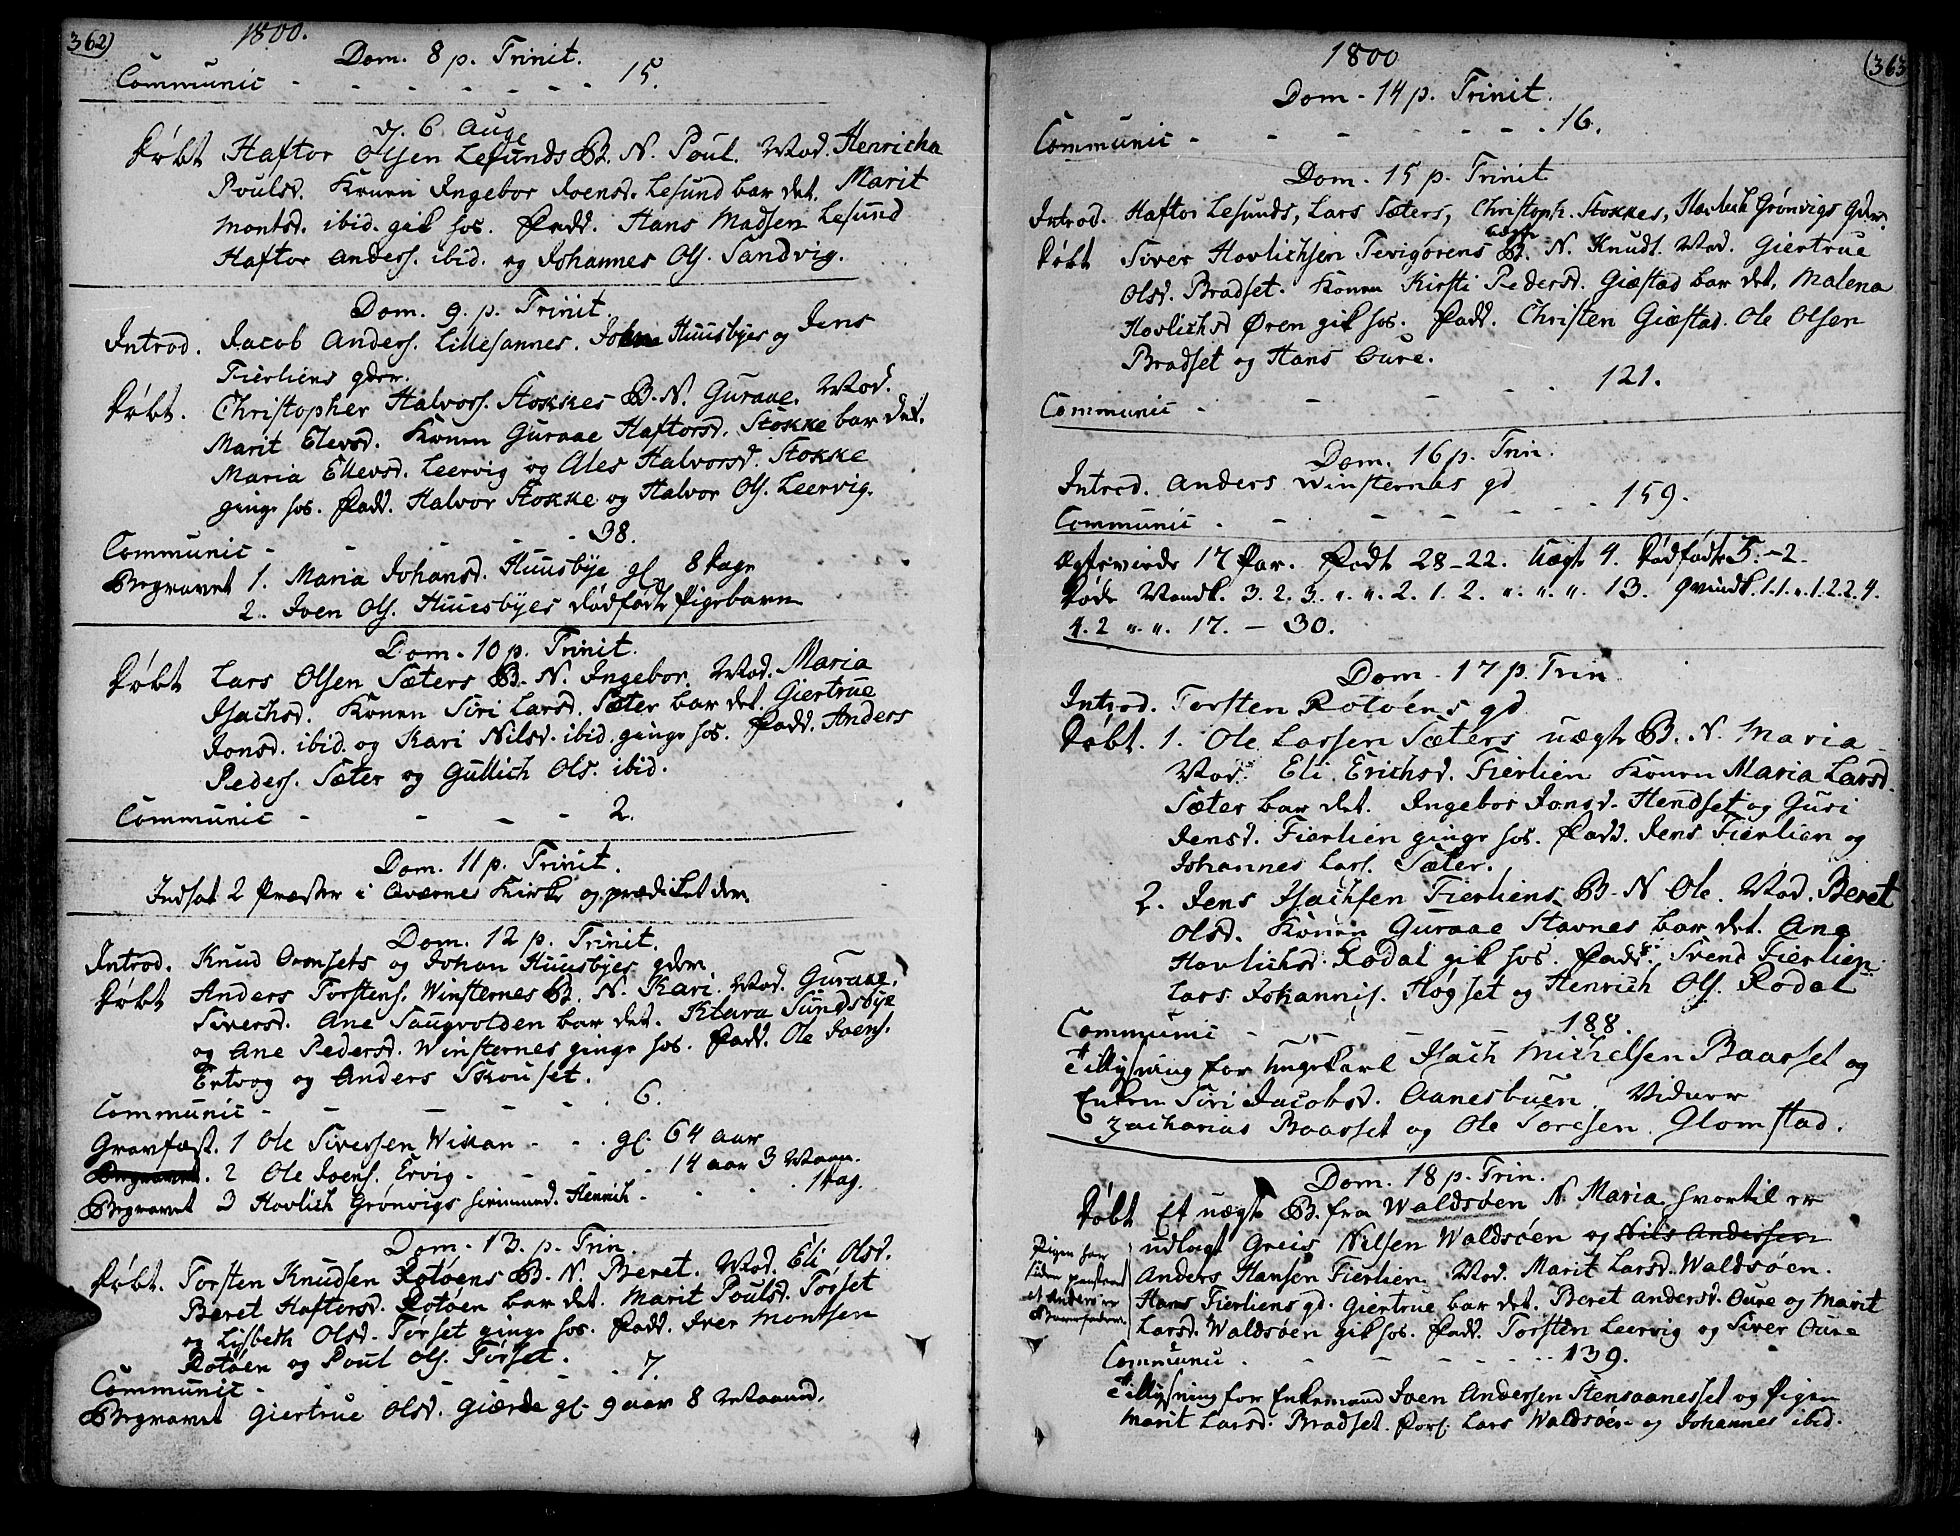 362)
1800.
Dom. 8 p. Trinit.
Communic - - - - - - - 15.
d. 6 Aug
Døbt Haftor Olsen Lesunds B. N. Poul. Mod. Henricha
Poulsd. Konen Ingebor Joensd. Lesund bar det. Marit
Montsd. ibid. gik hos. Fadd. Hans Madsen Lesund
Haftor Anders. ibid. og Johannes Ols. Sandvig.
Dom. 9. p. Trinit.
Introd. Jacob Anders. Lillesannes. Huusbyes og Jens
Fierliens qder.
Døbt. Christopher Halvors. Stokkes B. N. Guraae. Mod.
Marit Elevsd. Konen Guraae Haftorsd. Stokke bar det.
Maria Ellevsd. Leervig og Ales Halvorsd. Stokke
ginge hos. Fadd. Halvor Stokke og Halvor Ols. Leervig.
Communic - - - - 38.
Begravet 1. Maria Johansd. Huusbye gl. 8 Dage
2. Joen Ols. Huusbyes dødfødt Pigebarn
Dom. 10 p. Trinit.
Døbt Lars Olsen Sæters B. N. Ingebor. Mod. Maria
Isachsd. Konen Siri Larsd. Sæter bar det. Giertrue
Jonsd. ibid. og Kari Nilsd. ibid. ginge hos. Fadd. Anders
Peders. Sæter og Gullich Ols. ibid.
Communic - - - - 2.
Dom. 11 p. Trinit.
Indsat 2 Præster i Qværnes Kirke og prædiket der.
Dom. 12 p. Trinit.
Introd. Knud Ormsets og Johan Huusbyes qder.
Døbt Anders Torstens. Winsternes B. N. Kari. Mod. Guraae
Siversd. Ane Saugvolden bar det. Klara Sundsbye
og Ane Pedersd. Winsternes ginge hos. Fadd. Ole Joens.
Ertvog og Anders Skouset.
Communic - - - - - 6.
Gravfæst. 1 Ole Siversen Wikan - - gl. 64 aar
Begravet. 2 Ole Joens. Ervig - - - 14 aar 3 Maan.
Begravet 3 Hovlich Grønvigs Henrich - - - 1 Dag.
Dom. 13. p. Trin.
Døbt. Torsten Knudsen Rotøens B. N. Beret. Mod. Eli Olsd.
Beret Haftersd. Rotøen bar det. Marit Poulsd. Torset
og Lisbeth Olsd. Torset ginge hos. Fadd. Iver Montsen
Rotøen og Poul Ols. Torset.
Communic - - - - - 7.
Begravet Giertrue Olsd. Giærde gl. 9 aar 8 Maaned.
1800
(363
Dom. 14 p. Trinit.
Communic - - - - - - 16.
Dom. 15 p. Trinit.
Introd. Haftor Lesunds, Lars Sæters, Christoph. Stokkes, Hovlich Grønvigs qder.
Døbt Siver Hovlichsen Tevigorens uægte B. N. Knudt. Mod. Giertrue
Olsd. Bradset. Konen Kirsti Pedersd. Giæstad bar det. Malena
Hovlichsd Øren gik hos. Fadd. Christen Giæstad. Ole Olsen
Bradset og Hans Oure.
Communic - - - - 121.
Dom. 16 p. Trin.
Introd. Anders Winsternes qd
Communic - - - - - - 159.
Ægteviede 17 Par. Fødte 28-22. Uægte 4. Dødfødte 5.-2.
Døde Mandk. 3. 2. 3. ". ". 2. 1. 2. ". ". ". 13. Qvindk. 1. 1. ". 1. 2. 2. 4.
4. 2 ". ". 17. - 30.
Dom. 17 p. Trin
Introd. Torsten Rotøens qd
Døbt. 1. Ole Larsen Sæters uægte B. N. Maria
Mod. Eli Erichsd. Fierlien Konen Maria Larsd.
Sæter bar det. Ingebor Jonsd. Hendset og Guri
Jensd. Fierlien ginge hos. Fadd. Jens Fierlien og
Johannes Lars. Sæter.
2. Jens Isachsen Fierliens B. N Ole. Mod. Beret
Olsd. Konen Guraae Stavnes bar det. Ane
Hovlichsd. Rodal gik hos. Fadd. Svend Fierlien
Lars Johannis. Høgset og Henrich Ols. Rodal
Communic - - - - 188.
Tillysning for Ungekarl Isach Michelsen Baasset og
Enken Siri Jacobsd. Aanesbuen. Viduer
Zacharias Baasset og Ole Toresen Glomstad.
Dom. 18 p. Trin.
Døbt Et uægte B. fra Waldsøen N. Maria hvortil er
udlagt Greis Nilsen Waldsøen og Nils Andersen
Anders Hansen Fierlien. Mod. Marit Larsd. Waldsøen.
Hans Fierliens qd. Giertrue bar det. Beret Andersd. Oure og Marit
Larsd. Waldsøen gik hos. Fadd. Torsten Leervig og Siver Oure
Pigen har
siden paastaaet
at Anders er
Barnefader
Communic - - - - - - 139.
Tillysning for Enkemand Joen Andersen Stensaanesset og Pigen
Marit Larsd. Bradset. Forl. Lars Waldsøen og Johannes ibid.